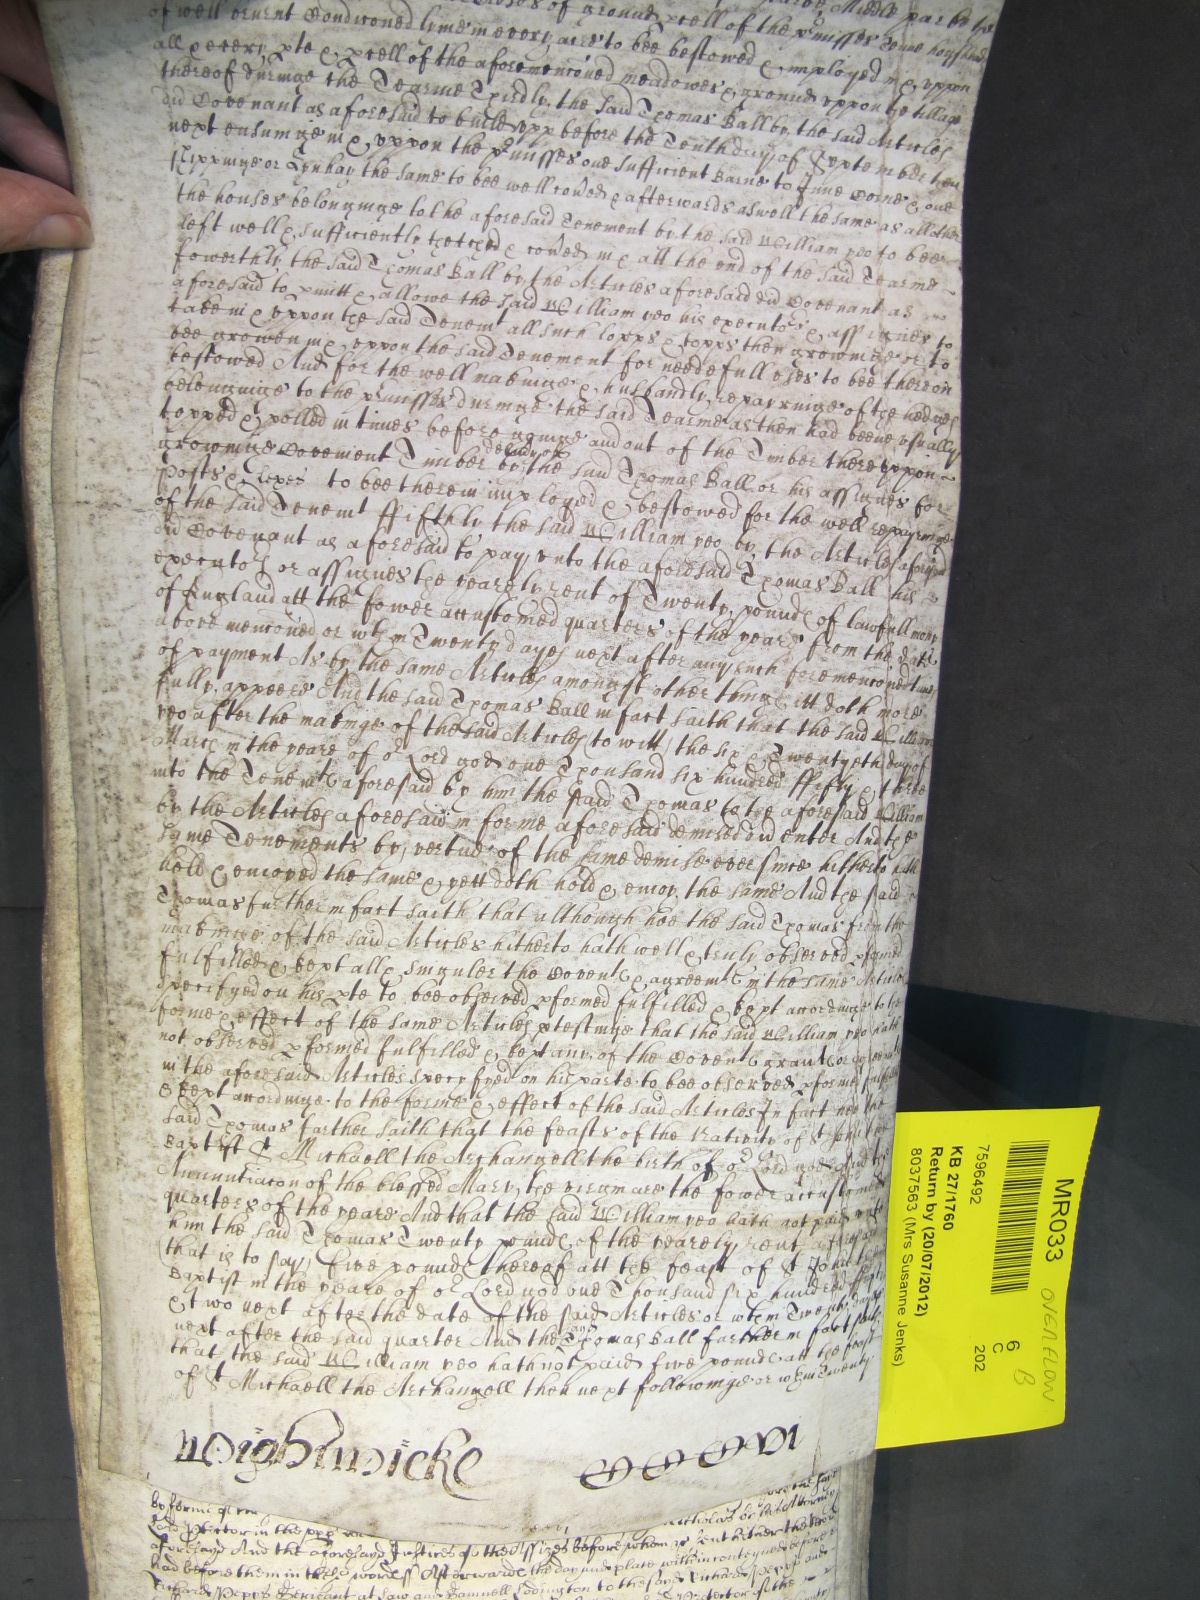 of well burnt Condiconed lyme in every acre to bee bestowed & imployed in & uppon
all & every pte & pcell of the aforemenconed meadowes & ground uppon the tillage
thereof duringe the Tearme Thirdly the said Thomas Ball by the said Articles
did Covenant as aforesaid to build upp before the Tenth day of September then
next ensuinge in & uppon the pmisses one sufficient Barne to Inne Corne & one
or Lynhay the same to bee well coved & afterwards aswell the same as all other
the houses belonginge to the aforesaid Tenement by the said William yeo to bee
left well & sufficiently thetched & coved in & att the end of the said Tearme
fowerthly the said Thomas Ball by the Articles aforesaid did Covenant as
aforesaid to pmitt & allowe the said William yeo his executors & assignes to
take in & uppon the said Tenemt all such lopps & topps then growinge or to
bee growen in & uppon the said Tenement for needefull uses to bee thereon
bestowed And for the well makinge & husbandly repayringe of the hedges
belonginge to the pmisses duringe the said Tearme as then had beene usually
topped & polled in times before and out of the Timber thereuppon
growinge Covenient Timber by the said Thomas Ball or his assignes for
posts & to bee therein imployed & bestowed for the well repayringe
of the said Tenemt ffifthly the said William yeo by the Articles aforesaid
did Covenant as aforesaid to pay unto the aforesaid Thomas Ball his
executors or assignes the yearely rent of Twenty pounds of lawfull mony
of England att the fower accustomed quarters of the yeare from the date
above menconed or wthin Twenty dayes next after any such forementioned time
of payment As by the same Articles amongst other things itt doth more
fully appeere And the said Thomas Ball in fact saith that the said William
yeo after the makinge of the said Articles to witt the six & Twentyeth day of
March in the yeare of or Lord god one Thousand six hundred ffifty & three
into the Tenemts aforesaid by him the said Thomas to the aforesaid William
by the Articles aforesaid in forme aforesaid demised did enter And the
same Tenements by vertue of the same demise ever since hitherto hath
held & enioyed the same & yett doth hold & enioy the same And the said
Thomas further in fact saith that although hee the said Thomas from the
makinge of the said Articles hitherto hath well & truly observed pformed
fulfilled & kept all & singuler the Covents & agreemts in the same Articles
specifyed on his pte to bee observed pformed fulfilled & kept accordinge to the
forme & effect of the same Articles ptestinge that the said William yeo hath
not observed pformed fulfilled & kept any of the Covents grants or agreemts
in the aforesaid Articles specifyed on his parte to bee observed pformed fulfilled
& kept accordinge to the forme & effect of the said Articles In fact hee the
said Thomas farther saith that the feasts of the Nativity of St John the
Baptist St Michaell the Archangell the birth of or Lord god And the
Annunciacon of the blessed Mary the virgin are the fower accustomed
quarters of the yeare And that the said William yeo hath not paid unto
him the said Thomas Twenty pounds of the yearely rent aforesaid
that is to say five pounds thereof att the feast of St John the
Baptist in the yeare of or Lord god one Thousand six hundred fifty
& two next after the date of the said Articles or wthin Twenty dayes
next after the said quarter And the said Thomas Ball farther in fact saith
that the said William yeo hath not paid five pounds att the feast
of St Michaell the Archangell then next followinge or wthin Twenty
Wightwicke CCCCVI
aforesayd And the aforesayd Justices of the Assizes before whom
had before them in these words Afterwards the day and place within conteyned before
Richard Pepys Serjeant at Law and
MR033
OVERFLOW
7596492
6
C
202
B
KB 27/1760
Return by (20/07/2012)
8037563 (Mrs Susanne Jenks)